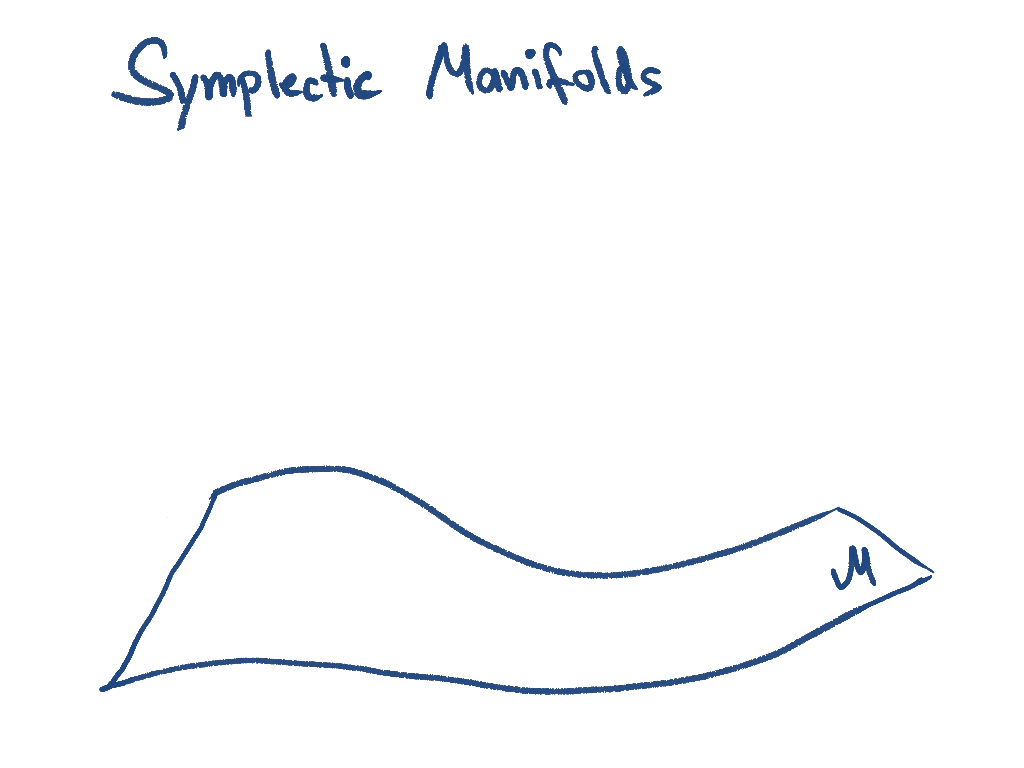 Symplectic Manifolds
M